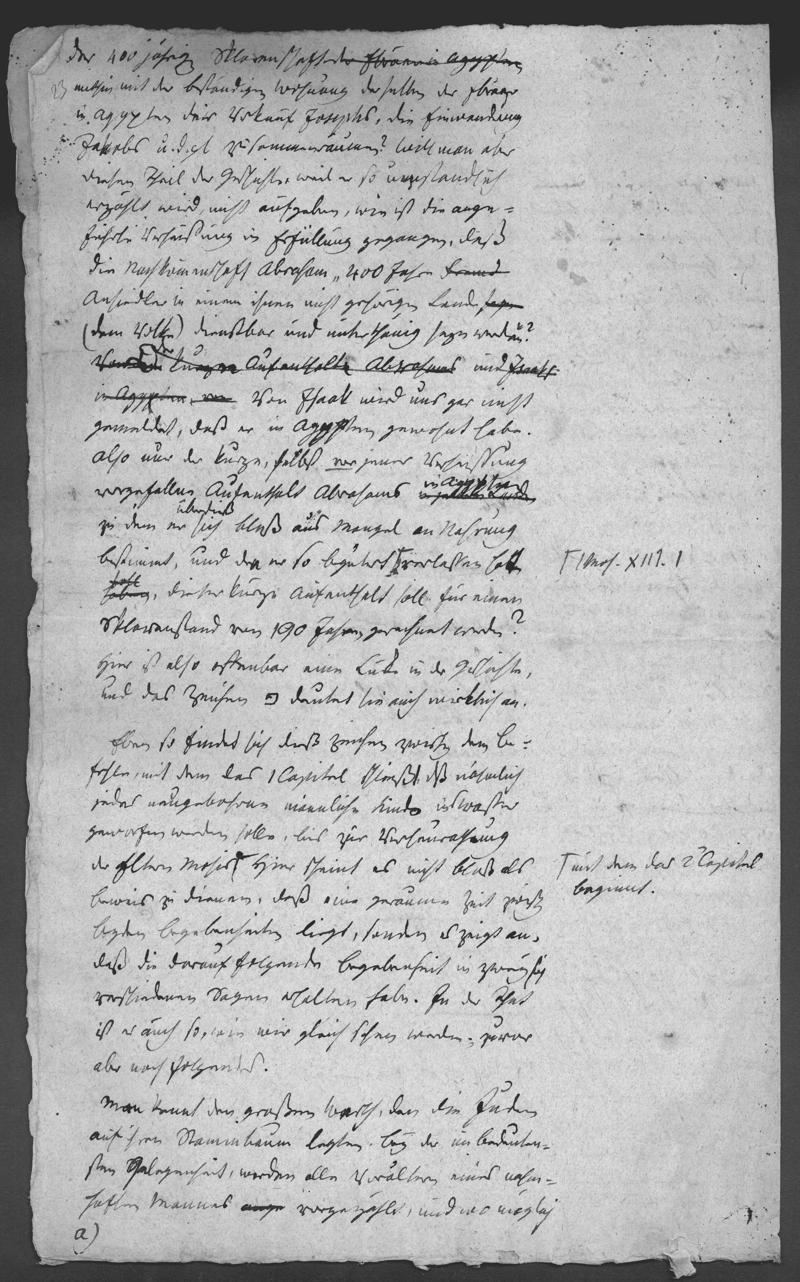 der 400 jährig Sklavenschaft der Ebräer in Ägypten
mit der beständigen Wohnung derselben der
in Ägypten den Verkauf Josephs, die Einwandrung
Jakobs u. d. gl. zusammenräumen? Will man aber
diesen Theil der Geschichte, weil er so umständlich
erzählt wird, nicht aufgeben, wie ist die ange=
führte Verheißung in Erfüllung gegangen, daß
die Nachkommenschaft Abrahams „400 Jahre fremd
Ansiedler in einem ihnen nicht gehörigen Lande seyn
(dem Volke) dienstbar und unterthänig seyn werden"?
kurzen Aufenthalte Abrahams und Isaaks
in Ägypten, von Von Isaak wird uns gar nicht
gemeldet, daß er in Ägypten gewohnt habe.
Also nur der kurze, selbst vor jener Verheissung
vorgefallene Aufenthalt Abrahams in Ägypten
zu dem er sich überdieß bloß aus Mangel an Nahrung
bestimmt, und den er so begütert verlassen hatt
haben, dieser kurze Aufenthalt soll für einen
Sklavenstand von 190 Jahren gerechnet werden?
Hier ist also offenbar eine Lücke in der Geschichte,
und das Zeichen deutet sie auch wirklich an.
Eben so findet sich dieß Zeichen zwischen dem Be=
fehle, mit dem das 1 Capitel schließt, daß nähmlich
jedes neugebohrne männliche Kind ins Wasser
geworfen werden solle, bis zur Verheurathung
der Eltern Moses. Hier scheint es nicht bloß als
Beweis zu dienen, daß eine geraume Zeit zwischen
beyden Begebenheiten liegt, sondern es zeigt an,
daß die darauf folgende Begebenheit in zwey sich
verschiedenen Sagen erhalten habe. In der That
ist es auch so, wie wir gleich sehen werden; zuvor
aber noch folgendes.
Man kennt den großen Werth, den die Juden
auf ihren Stammbaum legten. Bey der unbedeuten=
sten Gelegenheit, werden alle Vorältern eines nahm=
haften Mannes vorgezählt, und wo möglich
a)
1 Mos. XIII. 1
mit dem das 2 Capitel
beginnt.